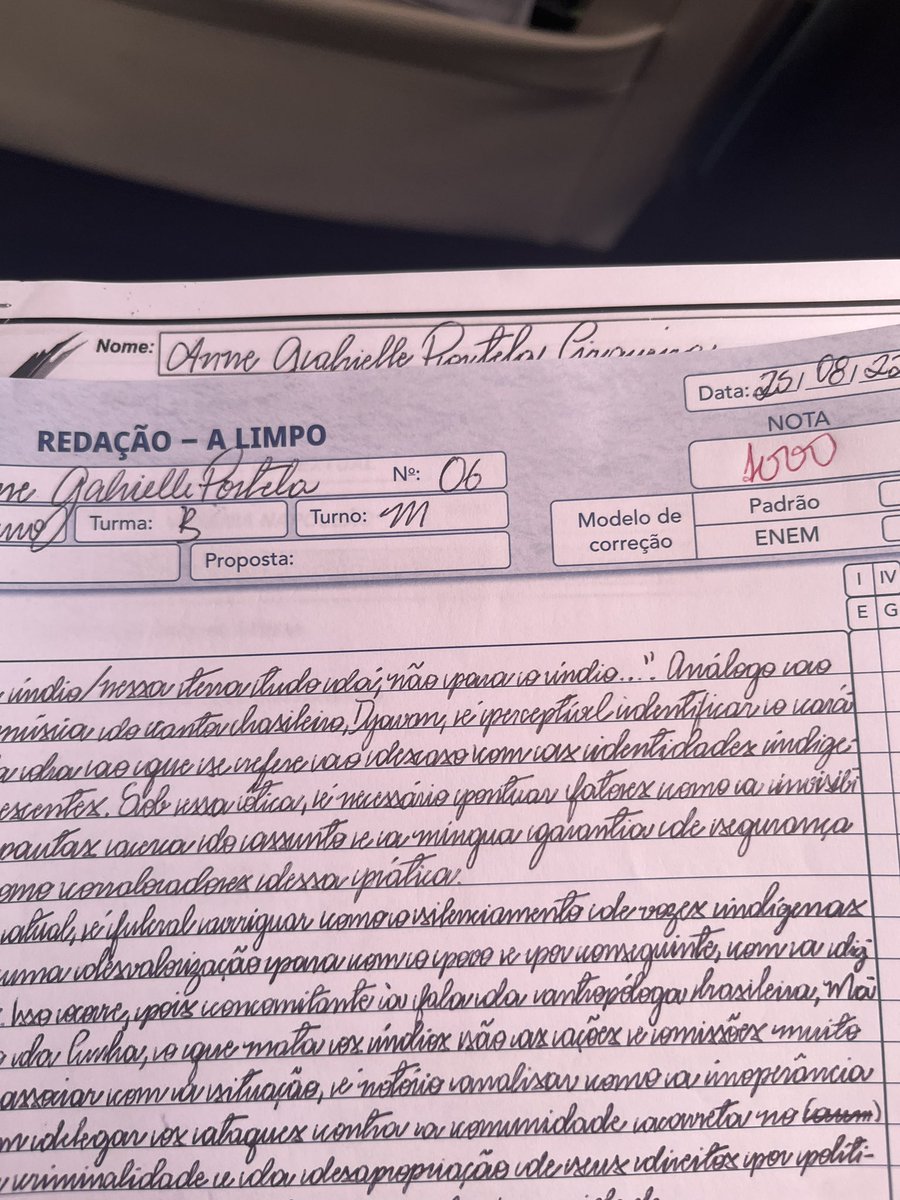 Nome: Anne Gabrielle Portela
Data: 25/08/22
REDAÇÃO – A LIMPO
NOTA
1000
ne Gabrielle Portela Nº: 06
Turma: B Turno: M
Modelo de correção Padrão
ENEM
Proposta:
I IV
E G
índio/nessa terra tudo dá, não para o índio...". Análogo ao
música do cantor brasileiro, Djavan, é perceptível identificar o cará
dra ao que se refere ao descaso com as identidades indíge-
escentes. Sob essa ótica, é necessário pontuar fatores como a invisibi
pautas acerca do assunto e a míngua garantia de segurança
omo corroboradores dessa prática.
atual, é fulcral arriguar como o silenciamento de vozes indígenas
uma desvalorização para com o povo e por conseguinte, com a dig
. Isso ocorre, pois concomitante à fala da antropóloga brasileira, Ma
da Cunha, o que mata os índios são as ações e omissões muito
associar com a situação, é notório analisar como a inoperância
m delegar os ataques contra a comunidade acarreta no
criminalidade e da desapropriação de seus direitos por políti-